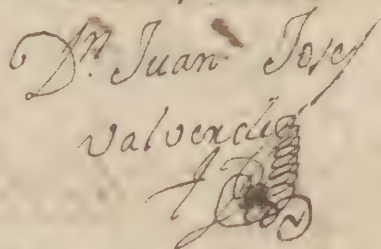 Dn. Juan Josef
Valverde